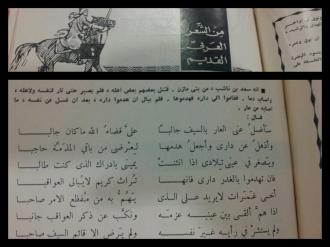 من الشعر
العربي
القديم
انه سعد بن ناشب ، من بني مازن . قتل بعضهم بعض اهله ، فلم يصبر حتى ثار لنفسه ولاهله ،
واصاب دما . فقاموا الى داره فهدموها . فلم يبال ان هدموا داره ، بعد ان غسل عن نفسه ، ما
اصابه من عار .
قال :
سأغسل عني العار بالسيف جالبا
على قضاء الله ماكان جالبا
وأذهل عن داري وأجعل هدمها
لعرضي من باقي المذمة حاجبا
ويصغر في عيني تلادي اذا انثنت
يميني بادراك الذي كنت طالبا
فان تهدموا بالغدر داري فانها
تراث كريم لايبالى العواقبا
أخي غمرات لايريد على الذي
يهم به من مفظع الامر صاحبا
اذا هم ألقى بين عينيه عزمه
ونكب عن ذكر العواقب جانبا
ولم يستشر في رأيه غير نفسه
ولم يرض الا قائم السيف صاحبا